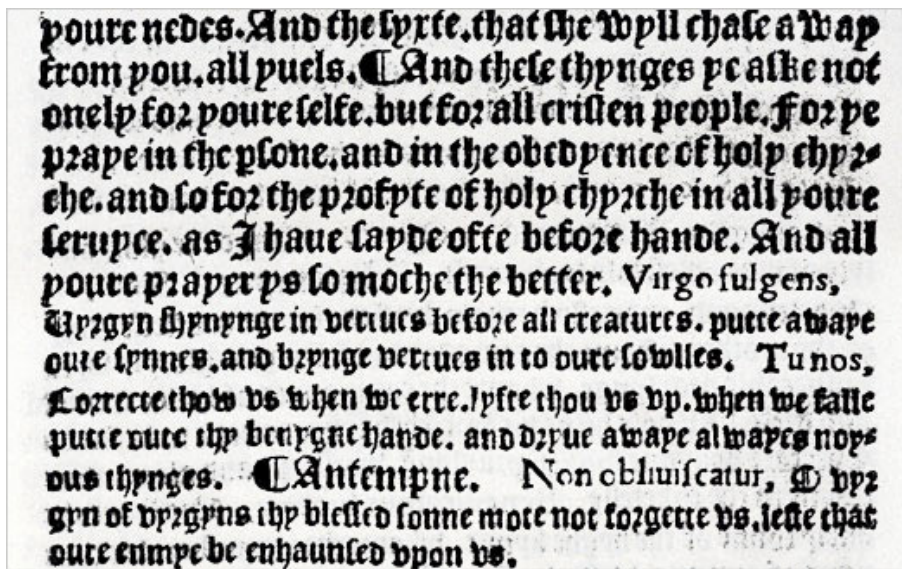 youre nedes. And the syxte, that she wyll chase a way
from you, all yuels. ¶And these thynges ye aske not
onely for youre selfe. but for all cristen people. For ye
praye in the ꝑsone, and in the obedyence of holy chyr-
che. and so for the profyte of holy chyrche in all youre
seruyce. as I haue sayde ofte before hande. And all
youre prayer ys so moche the better. Virgo fulgens,
Uyrgyn shynynge in vertues before all creatures. putte awaye
oure synnes, and brynge vertues in to oure sowlles. Tu nos,
Correcte thow vs when we erre. lyfte thou vs vp. when we falle
putte oute thy benygne hande. and dryue awaye alwayes noy-
ous thynges. ¶Antempne. Non obliuiscatur, O vyr
gyn of vyrgyns thy blessed sonne mote not forgette vs. leste that
oure enmye be enhaunsed vpon vs.